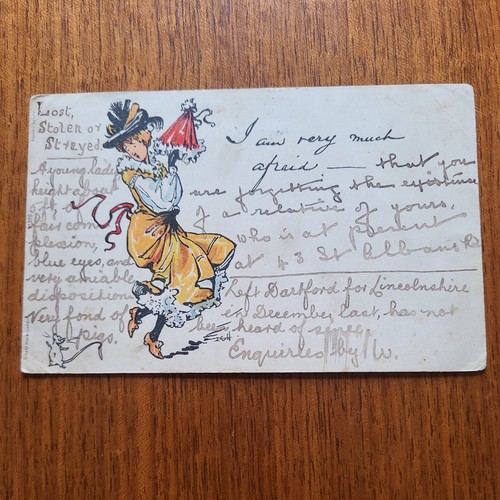 Lost,
Stolen or
Strayed
A young lady,
height about
5 ft, of
fair com
plexion,
blue eyes, and
very amiable
disposition
Very fond of
pigs.
I am very much
afraid — that you
are forgetting the existence
of a relative of yours,
who is at present
at 43 St Albans Rd
Left Dartford for Lincolnshire
in December last, has not
been heard of since.
Enquiries by W.